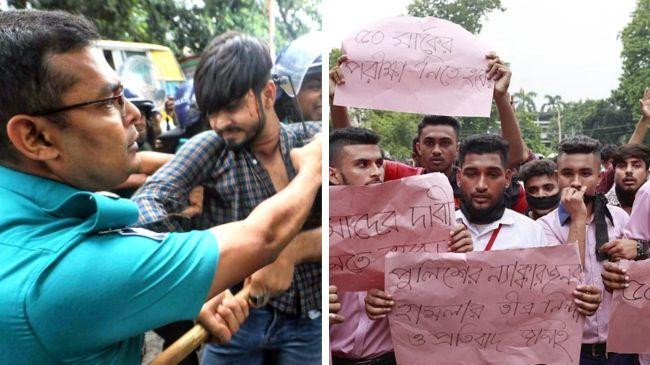 ৫০ মার্কের
পরীক্ষা নিতে হবে
মাদের দাবী
নতে
পুলিশের ন্যাক্কারজনক
হামলার তীব্র নিন্দা
ও প্রতিবাদ জানাই
৫০